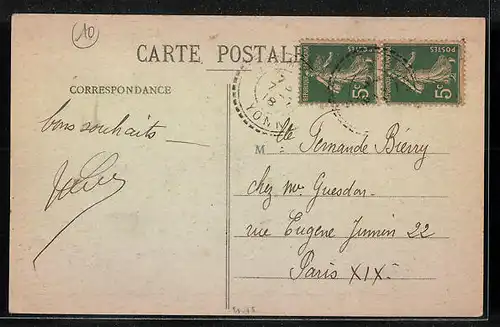 10
CARTE POSTALE
POSTES 5c
POSTES 5c
YONNE
CORRESPONDANCE
bons souhaits —
M lle Fernande Biérry
chez Mr Guesdon
rue Eugène Jumin 22
Paris XIXe